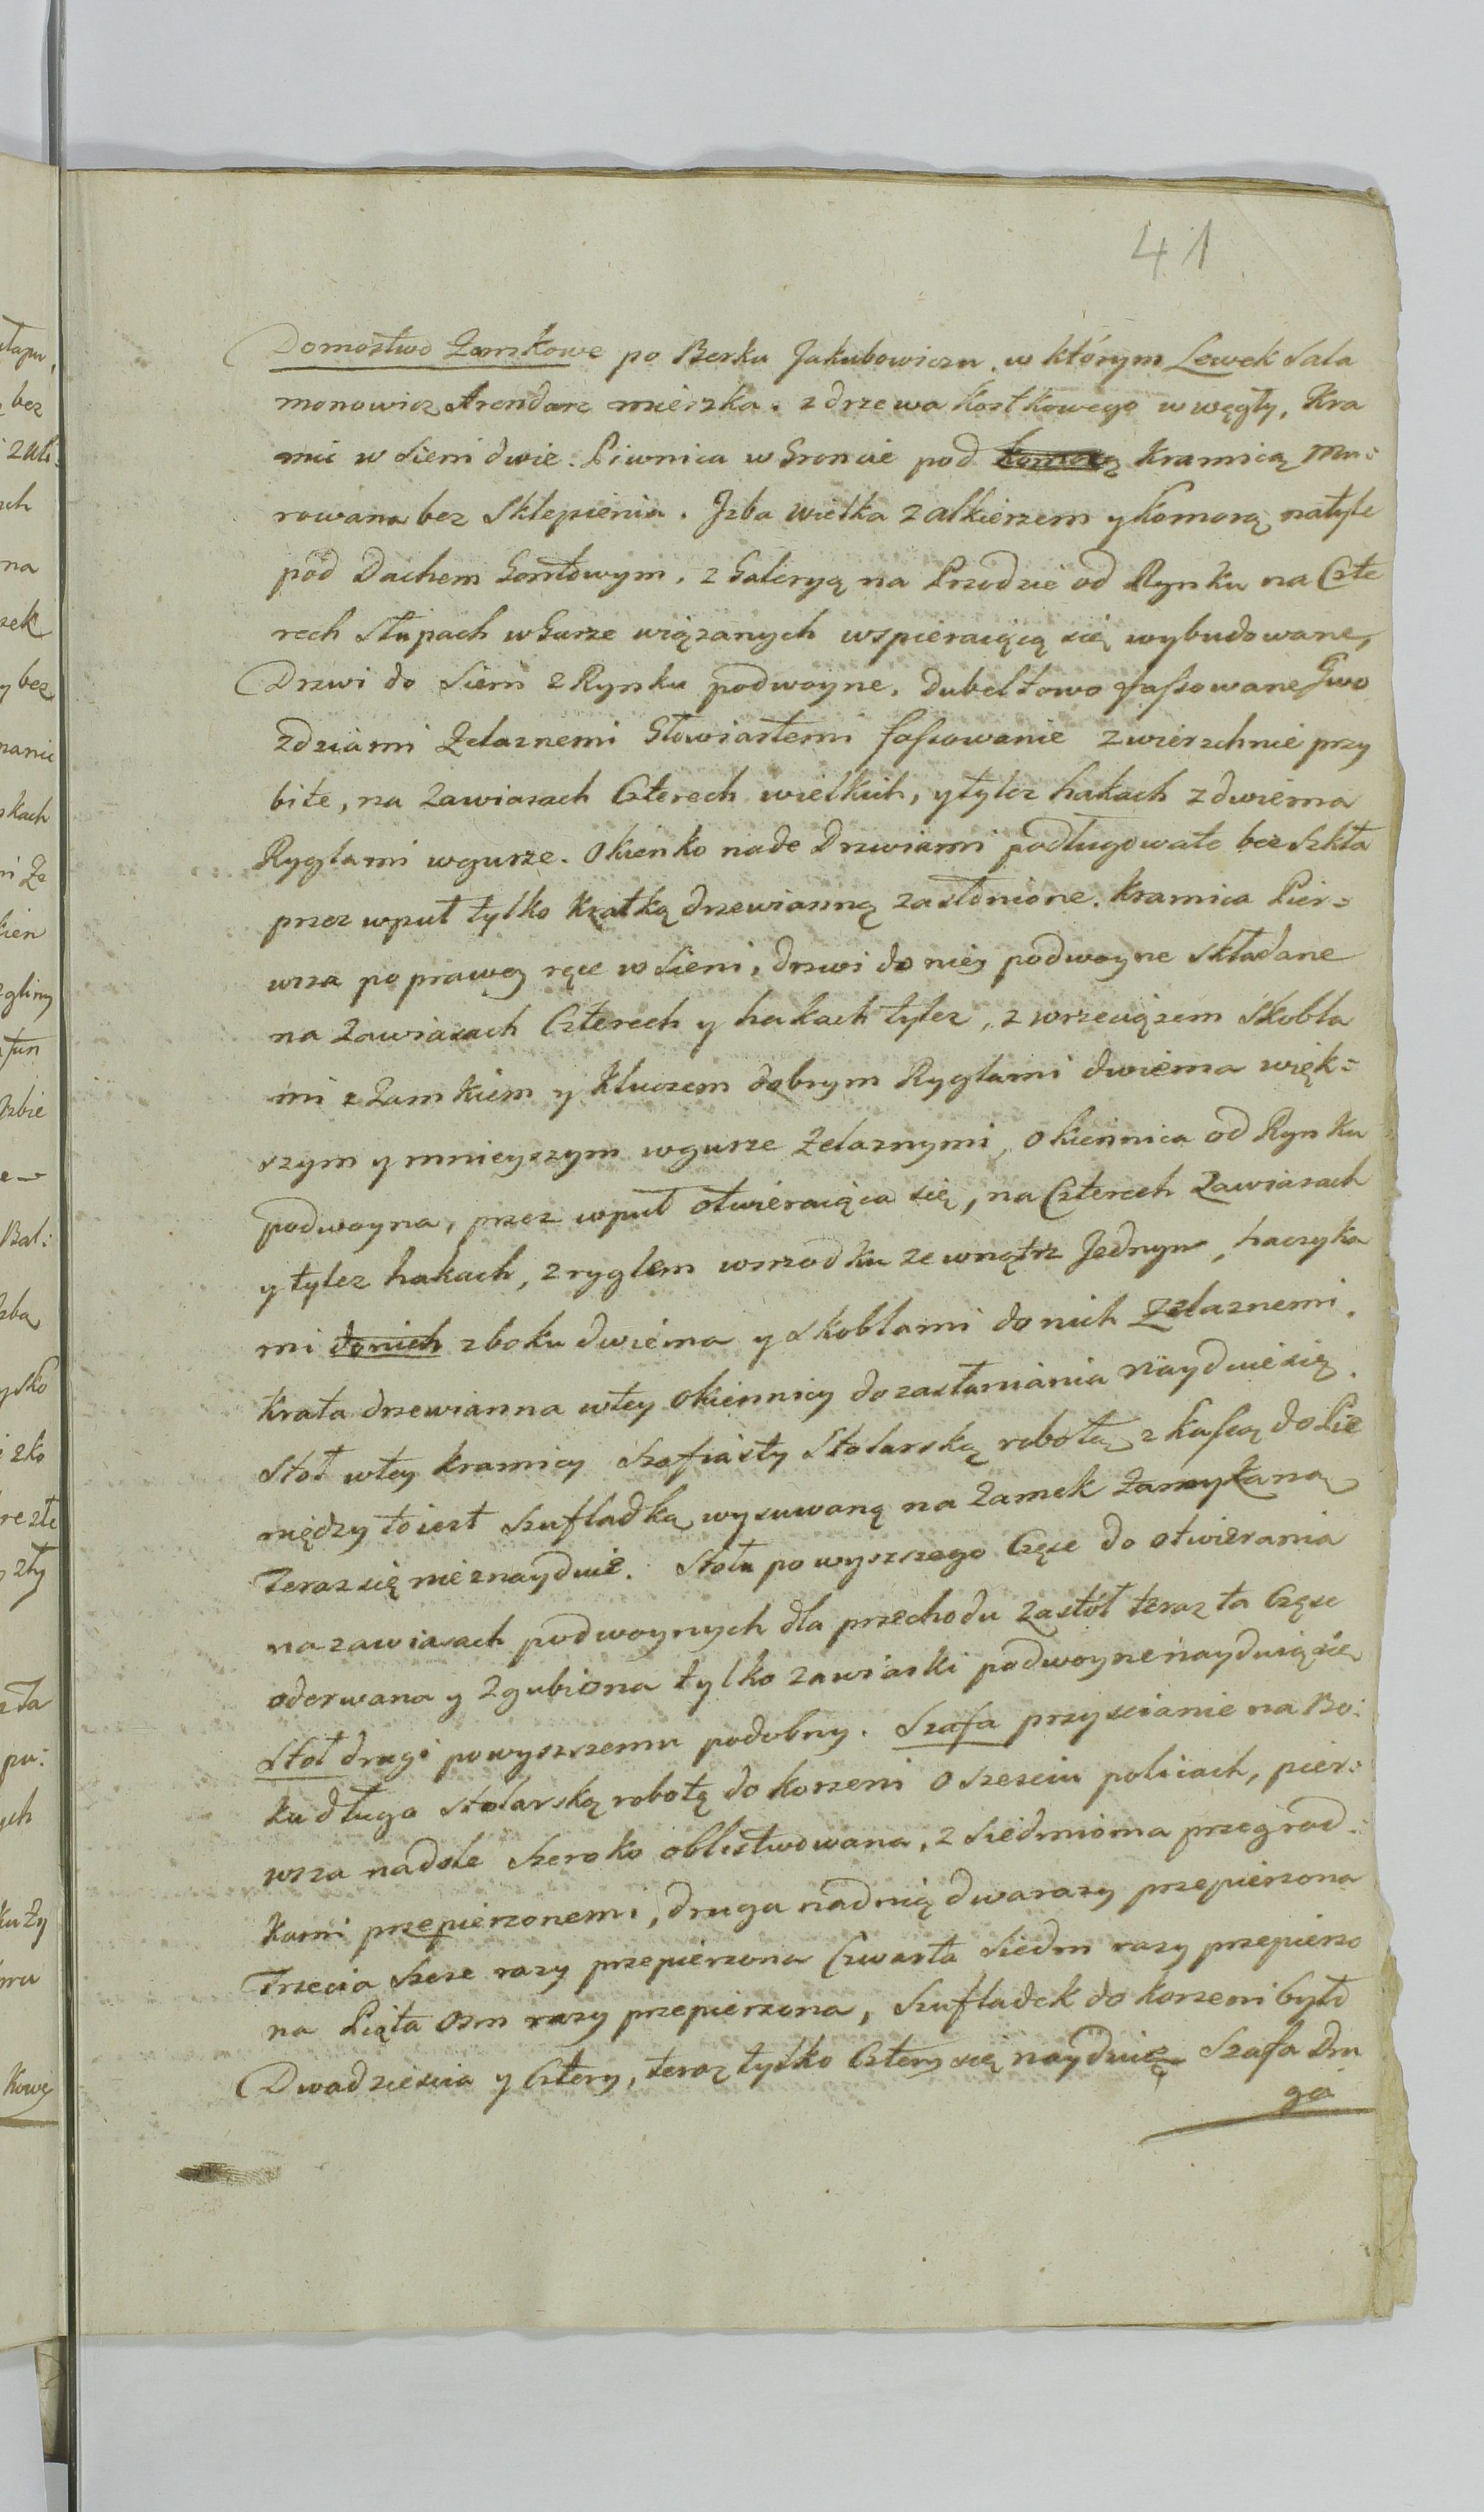 41
Domostwo Zamkowe po Berku Jakubowiczu, w którym Lewek Sala
monowicz Arendarz mieszka. z drzewa Kostkowego w węgły, Kra
mic w Sieni dwie. Piwnica w Groncie pod komorą Kramicą Mu:
rowana bez Sklepienia. Jzba wielka z alkierzem y Komorą natyle
pod Dachem Gontowym, z Galeryą na Przodzie od Rynku na Czte
rech Słupach w Gurze wiązanych wspieraiącą się wybudowane,
Drzwi do Sieni z Rynku podwoyne, dubeltowo fassowane Gwo
zdziami Zelaznemi Głowiastemi fassowanie zwierzchnie przy
bite, na Zawiasach Czterech wielkich, y tylez hakach z dwiema
Ryglami w gurze. Okienko nade Drzwiami podługowate bez Szkła
przez wpuł tylko Kratką drzewianną zasłonione. Kramica Pier=
wsza po prawey ręce w Sieni, drzwi do niey podwoyne Składane
na Zawiasach Czterech y hakach tylez, z wrzeciązem Skobla
mi z Zamkiem y Kluczem dobrym Ryglami dwiema więk=
szym y mnieyszym w gurze Zelaznymi, Okiennica od Rynku
podwoyna, przez wpuł otwieraiąca się, na Czterech Zawiasach
y tylez hakach, z ryglem wsrzodku ze wnątrz Jednym, haczyka
mi do nich z boku dwiema y skoblami do nich Zelaznemi.
Krata drzewianna w tey Okiennicy do zasłaniania nayduie się.
Stoł w tey Kramicy Szafiasty Stolarską robotą z kassą do Pie
niędzy to iest Szufladką wysuwaną na Zamek Zamykaną
Teraz się nieznayduie. Stołu powyszszego Częsc do otwierania
na zawiasach podwoynych dla przechodu za stół teraz ta Częsc
oderwana y Zgubiona tylko zawiaski podwoyne nayduią się
Stoł drugi powyszszemu podobny. Szafa przy scianie na Bo:
ku długa Stolarską robotą do korzeni o szesciu policach, pier:
wsza nadole Szeroko oblistwowana, z Siedmioma przegrod:
kami przepierzonemi, druga nad nią dwa razy przepierzona
Trzecia Szesc razy przepierzona Czwarta Siedm razy przepierzo
na Piąta Osm razy przepierzona, Szufladek do korzeni było
Dwadziescia y Cztery, teraz tylko Cztery się nayduię Szafa Dru
ga